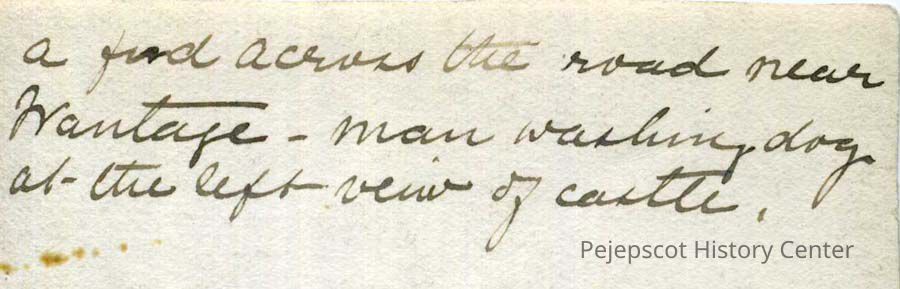 a ford across the road near
Wantage - man washing dog
at the left veiw of castle.
Pejepscot History Center